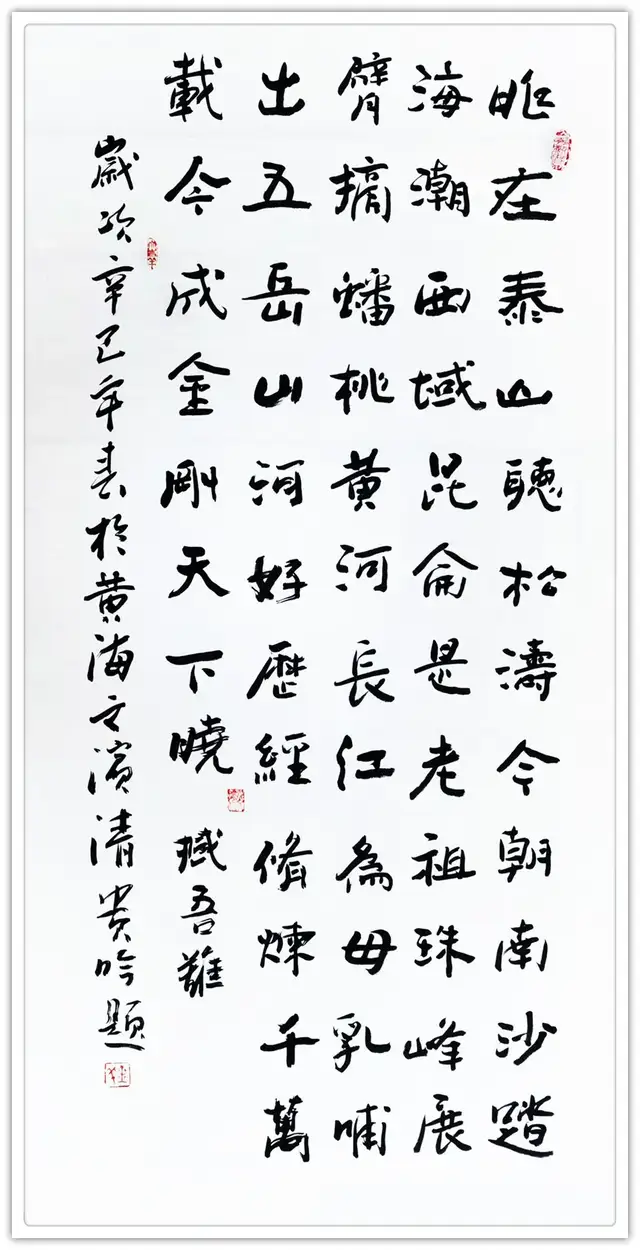 昨在泰山聽松濤今朝南沙踏
海潮西域昆侖是老祖珠峰展
臂摘蟠桃黄河長江為母乳哺
出五岳山河好歷經脩煉千萬
載今成金剛天下曉 吾
歲次辛巳年春於黄海之濱清貴吟題